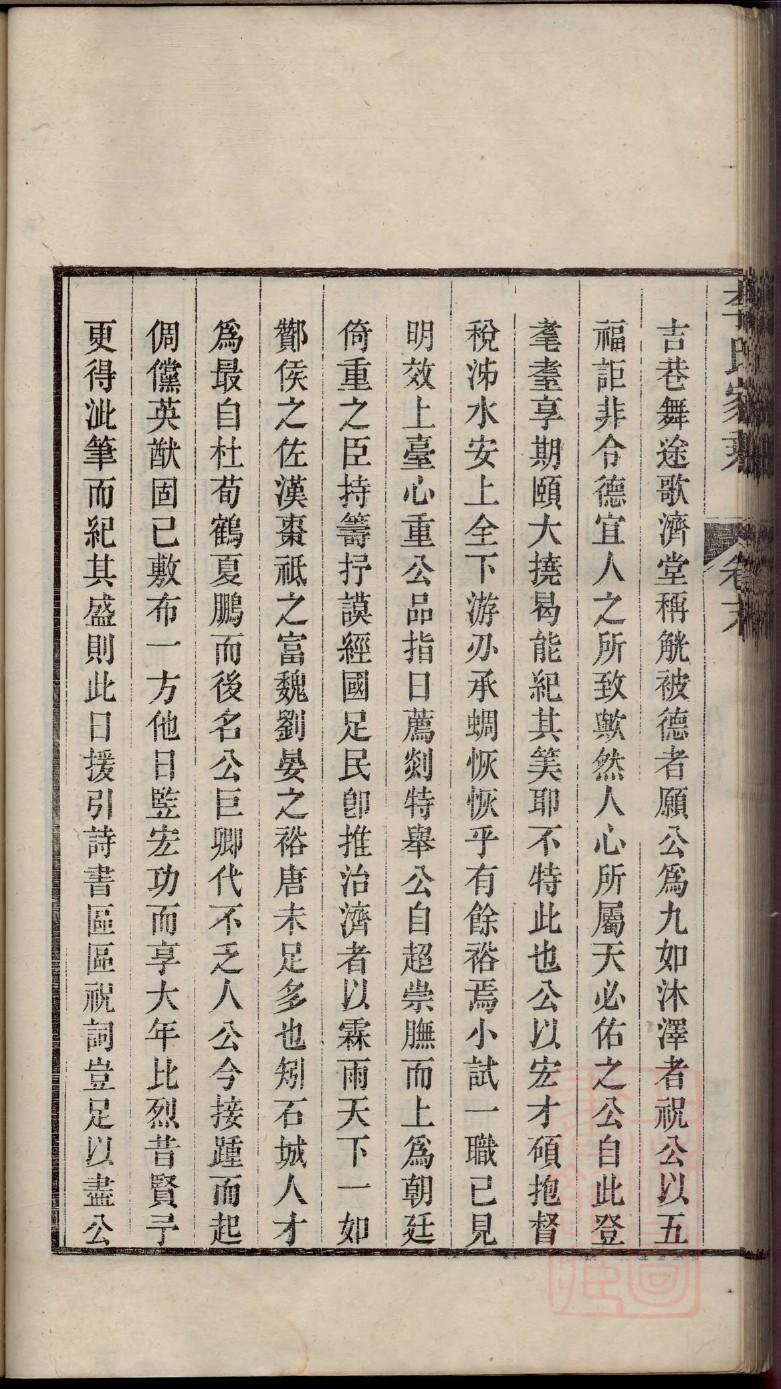 李氏家乘 卷末
吉巷舞途歌濟堂稱觥被德者願公爲九如沐澤者祝公以五
福詎非令德宜人之所致歟然人心所屬天必佑之公自此登
耄耋享期頤大撓曷能紀其筭耶不特此也公以宏才碩抱督
稅㳍水安上全下游刃承蜩恢恢乎有餘裕焉小試一職已見
明效上臺心重公品指日薦剡特舉公自超崇膴而上爲朝廷
倚重之臣持籌抒謨經國足民卽推治濟者以霖雨天下一如
酇侯之佐漢棗祗之富魏劉晏之裕唐未足多也矧石城人才
爲最自杜荀鶴夏鵬而後名公巨卿代不乏人公今接踵而起
倜儻英猷固已敷布一方他日竪宏功而享大年比烈昔賢予
更得泚筆而紀其盛則此日援引詩書區區祝詞豈足以盡公